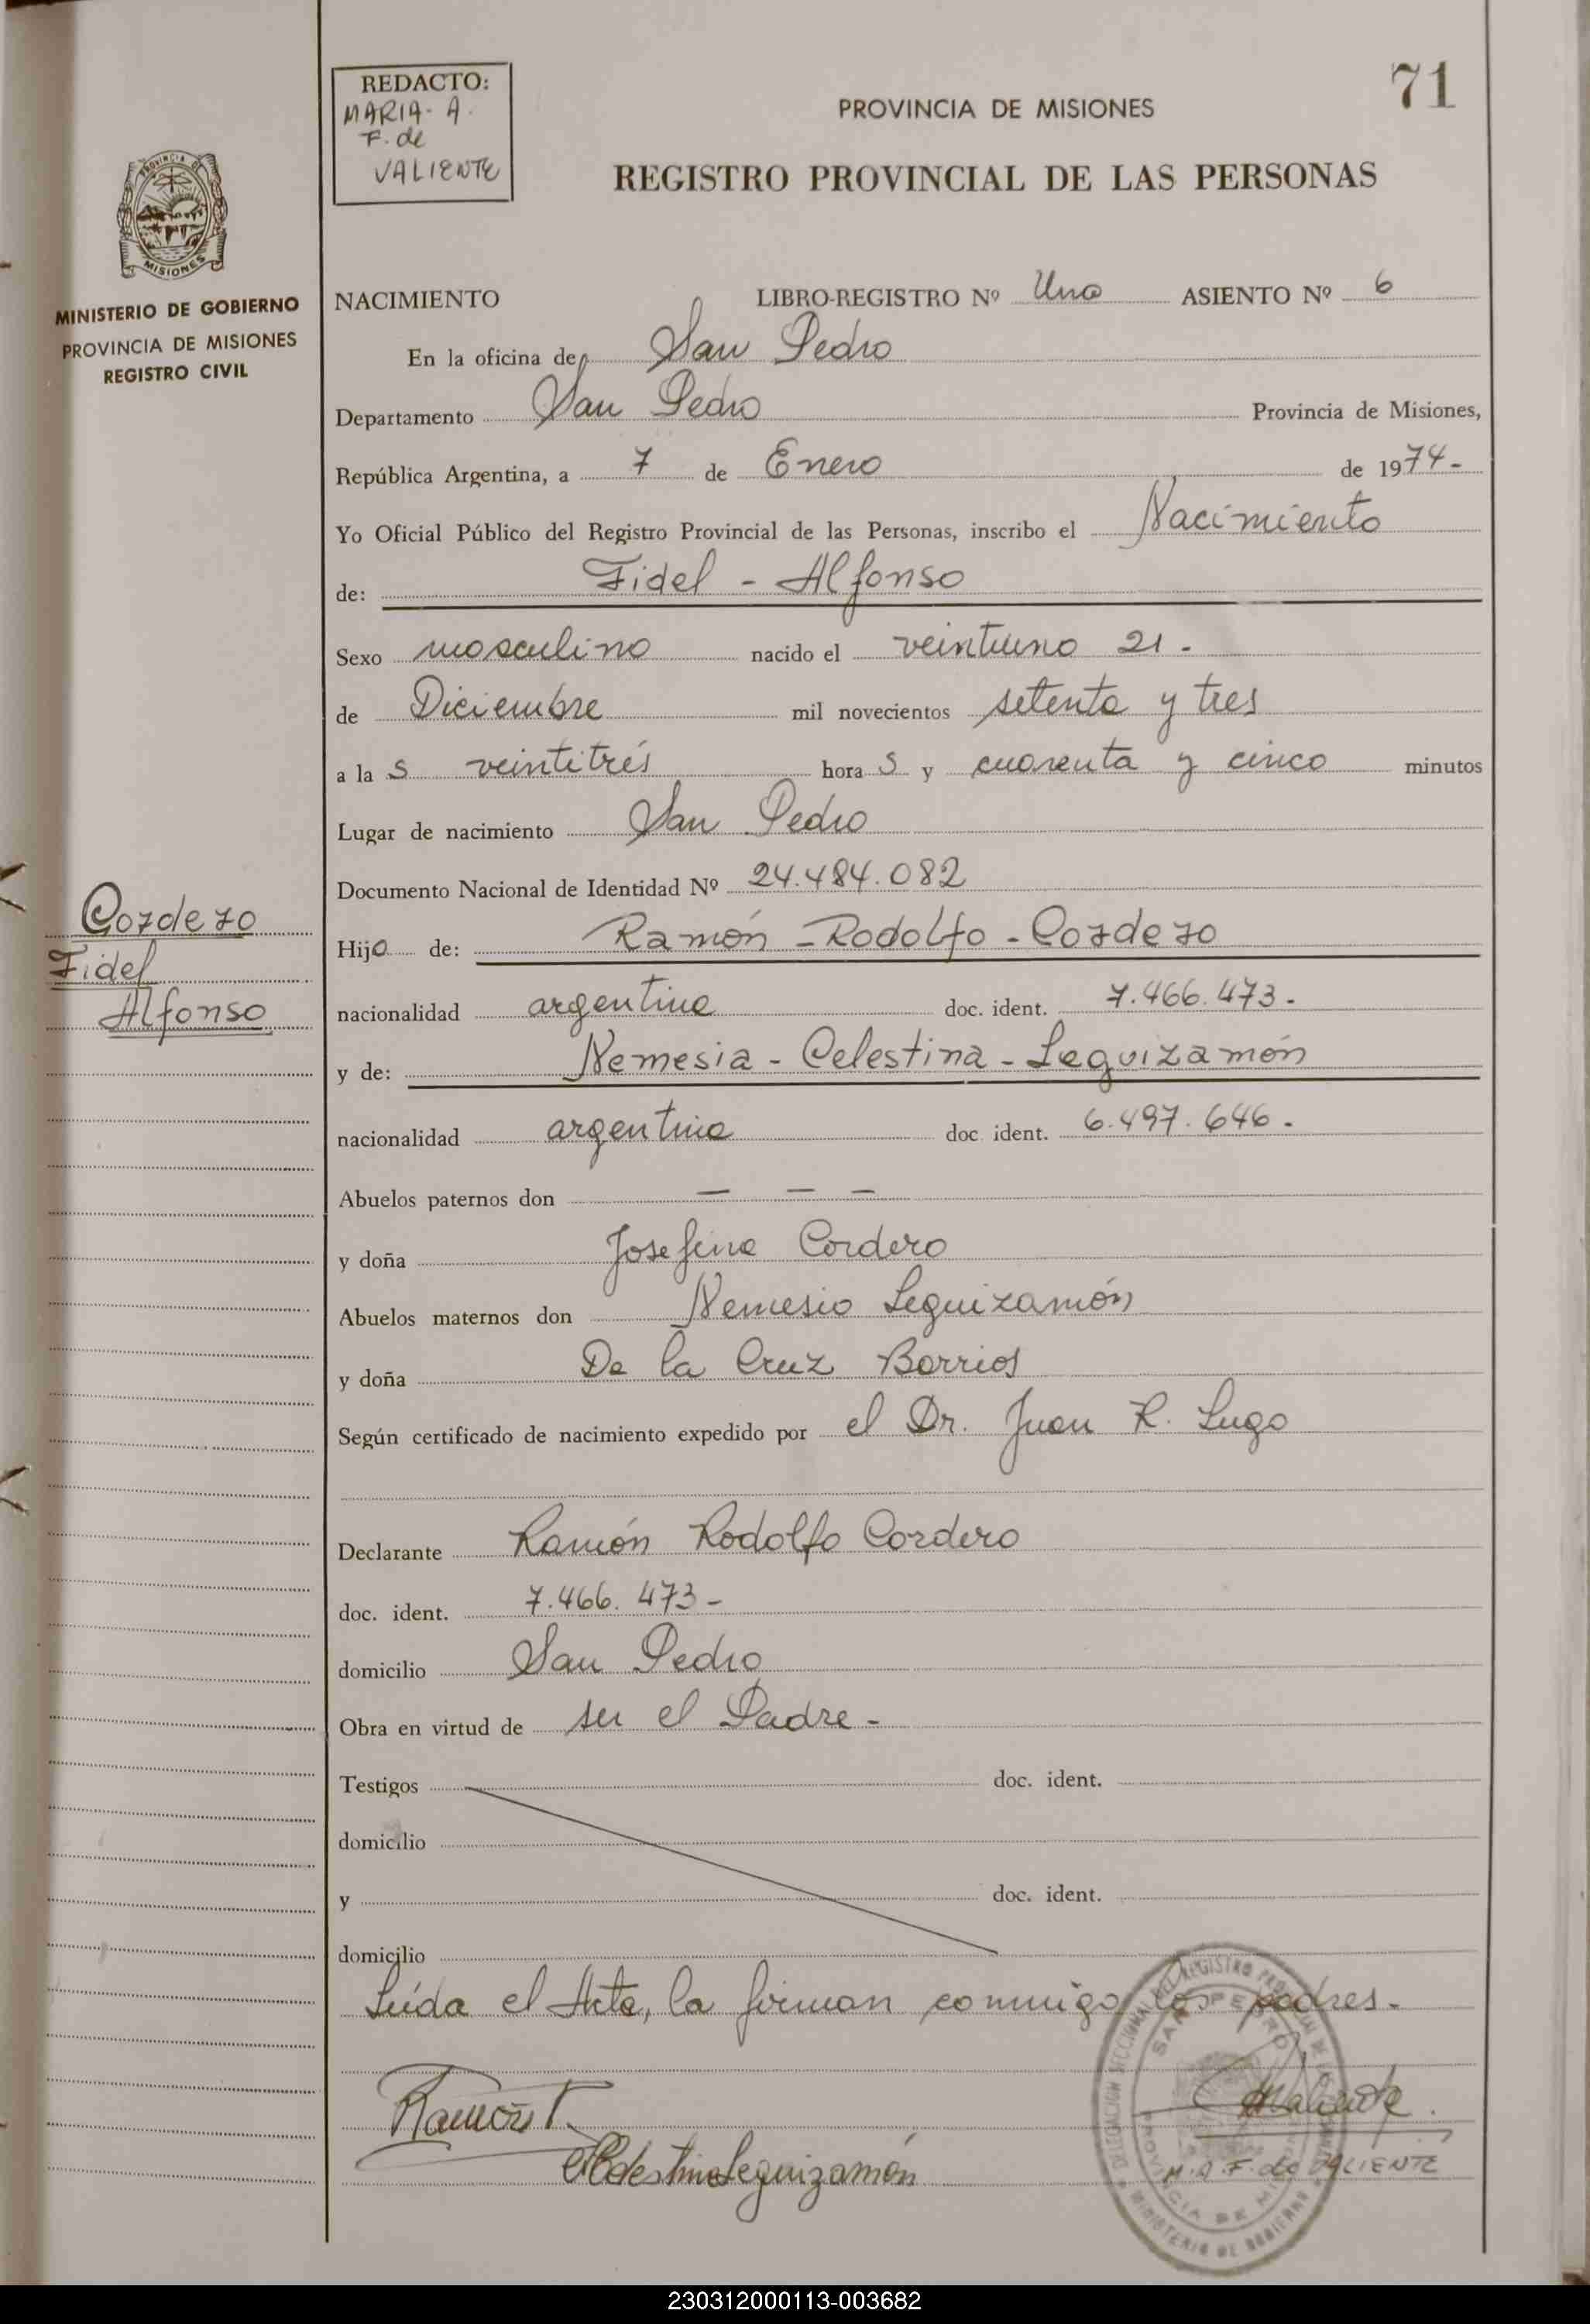 71
REDACTO:
MARIA- A.
F. de
VALIENTE
PROVINCIA DE MISIONES
REGISTRO PROVINCIAL DE LAS PERSONAS
PROVINCIA DE
MISIONES
MINISTERIO DE GOBIERNO
PROVINCIA DE MISIONES
REGISTRO CIVIL
NACIMIENTO LIBRO-REGISTRO Nº Uno ASIENTO Nº 6
En la oficina de San Pedro
Departamento San Pedro Provincia de Misiones,
República Argentina, a 7 de Enero de 1974-
Yo Oficial Público del Registro Provincial de las Personas, inscribo el Nacimiento
de: Fidel - Alfonso
Sexo masculino nacido el veintiuno 21 -
de Diciembre mil novecientos setenta y tres
a la s veintitrés hora s y cuarenta y cinco minutos
Lugar de nacimiento San Pedro
Documento Nacional de Identidad Nº 24.484.082
Cordero
Fidel
Alfonso
Hijo de: Ramón - Rodolfo - Cordero
nacionalidad argentina doc. ident. 7.466.473-
y de: Nemesia - Celestina - Leguizamón
nacionalidad argentina doc ident. 6.497.646-
Abuelos paternos don — — —
y doña Josefina Cordero
Abuelos maternos don Nemesio Leguizamón
y doña De la Cruz Barrios
Según certificado de nacimiento expedido por el Dr. Juan R. Lugo
Declarante Ramón Rodolfo Cordero
doc. ident. 7.466.473-
domicilio San Pedro
Obra en virtud de ser el Padre-
Testigos doc. ident.
domicilio
y doc. ident.
domicilio
Leída el Acta, la firman conmigo los padres.
Ramón
Leguizamón
Valiente
M. A. F. de VALIENTE
SAN PEDRO
PROVINCIA DE MISIONES
MINISTERIO DE GOBIERNO
230312000113-003682